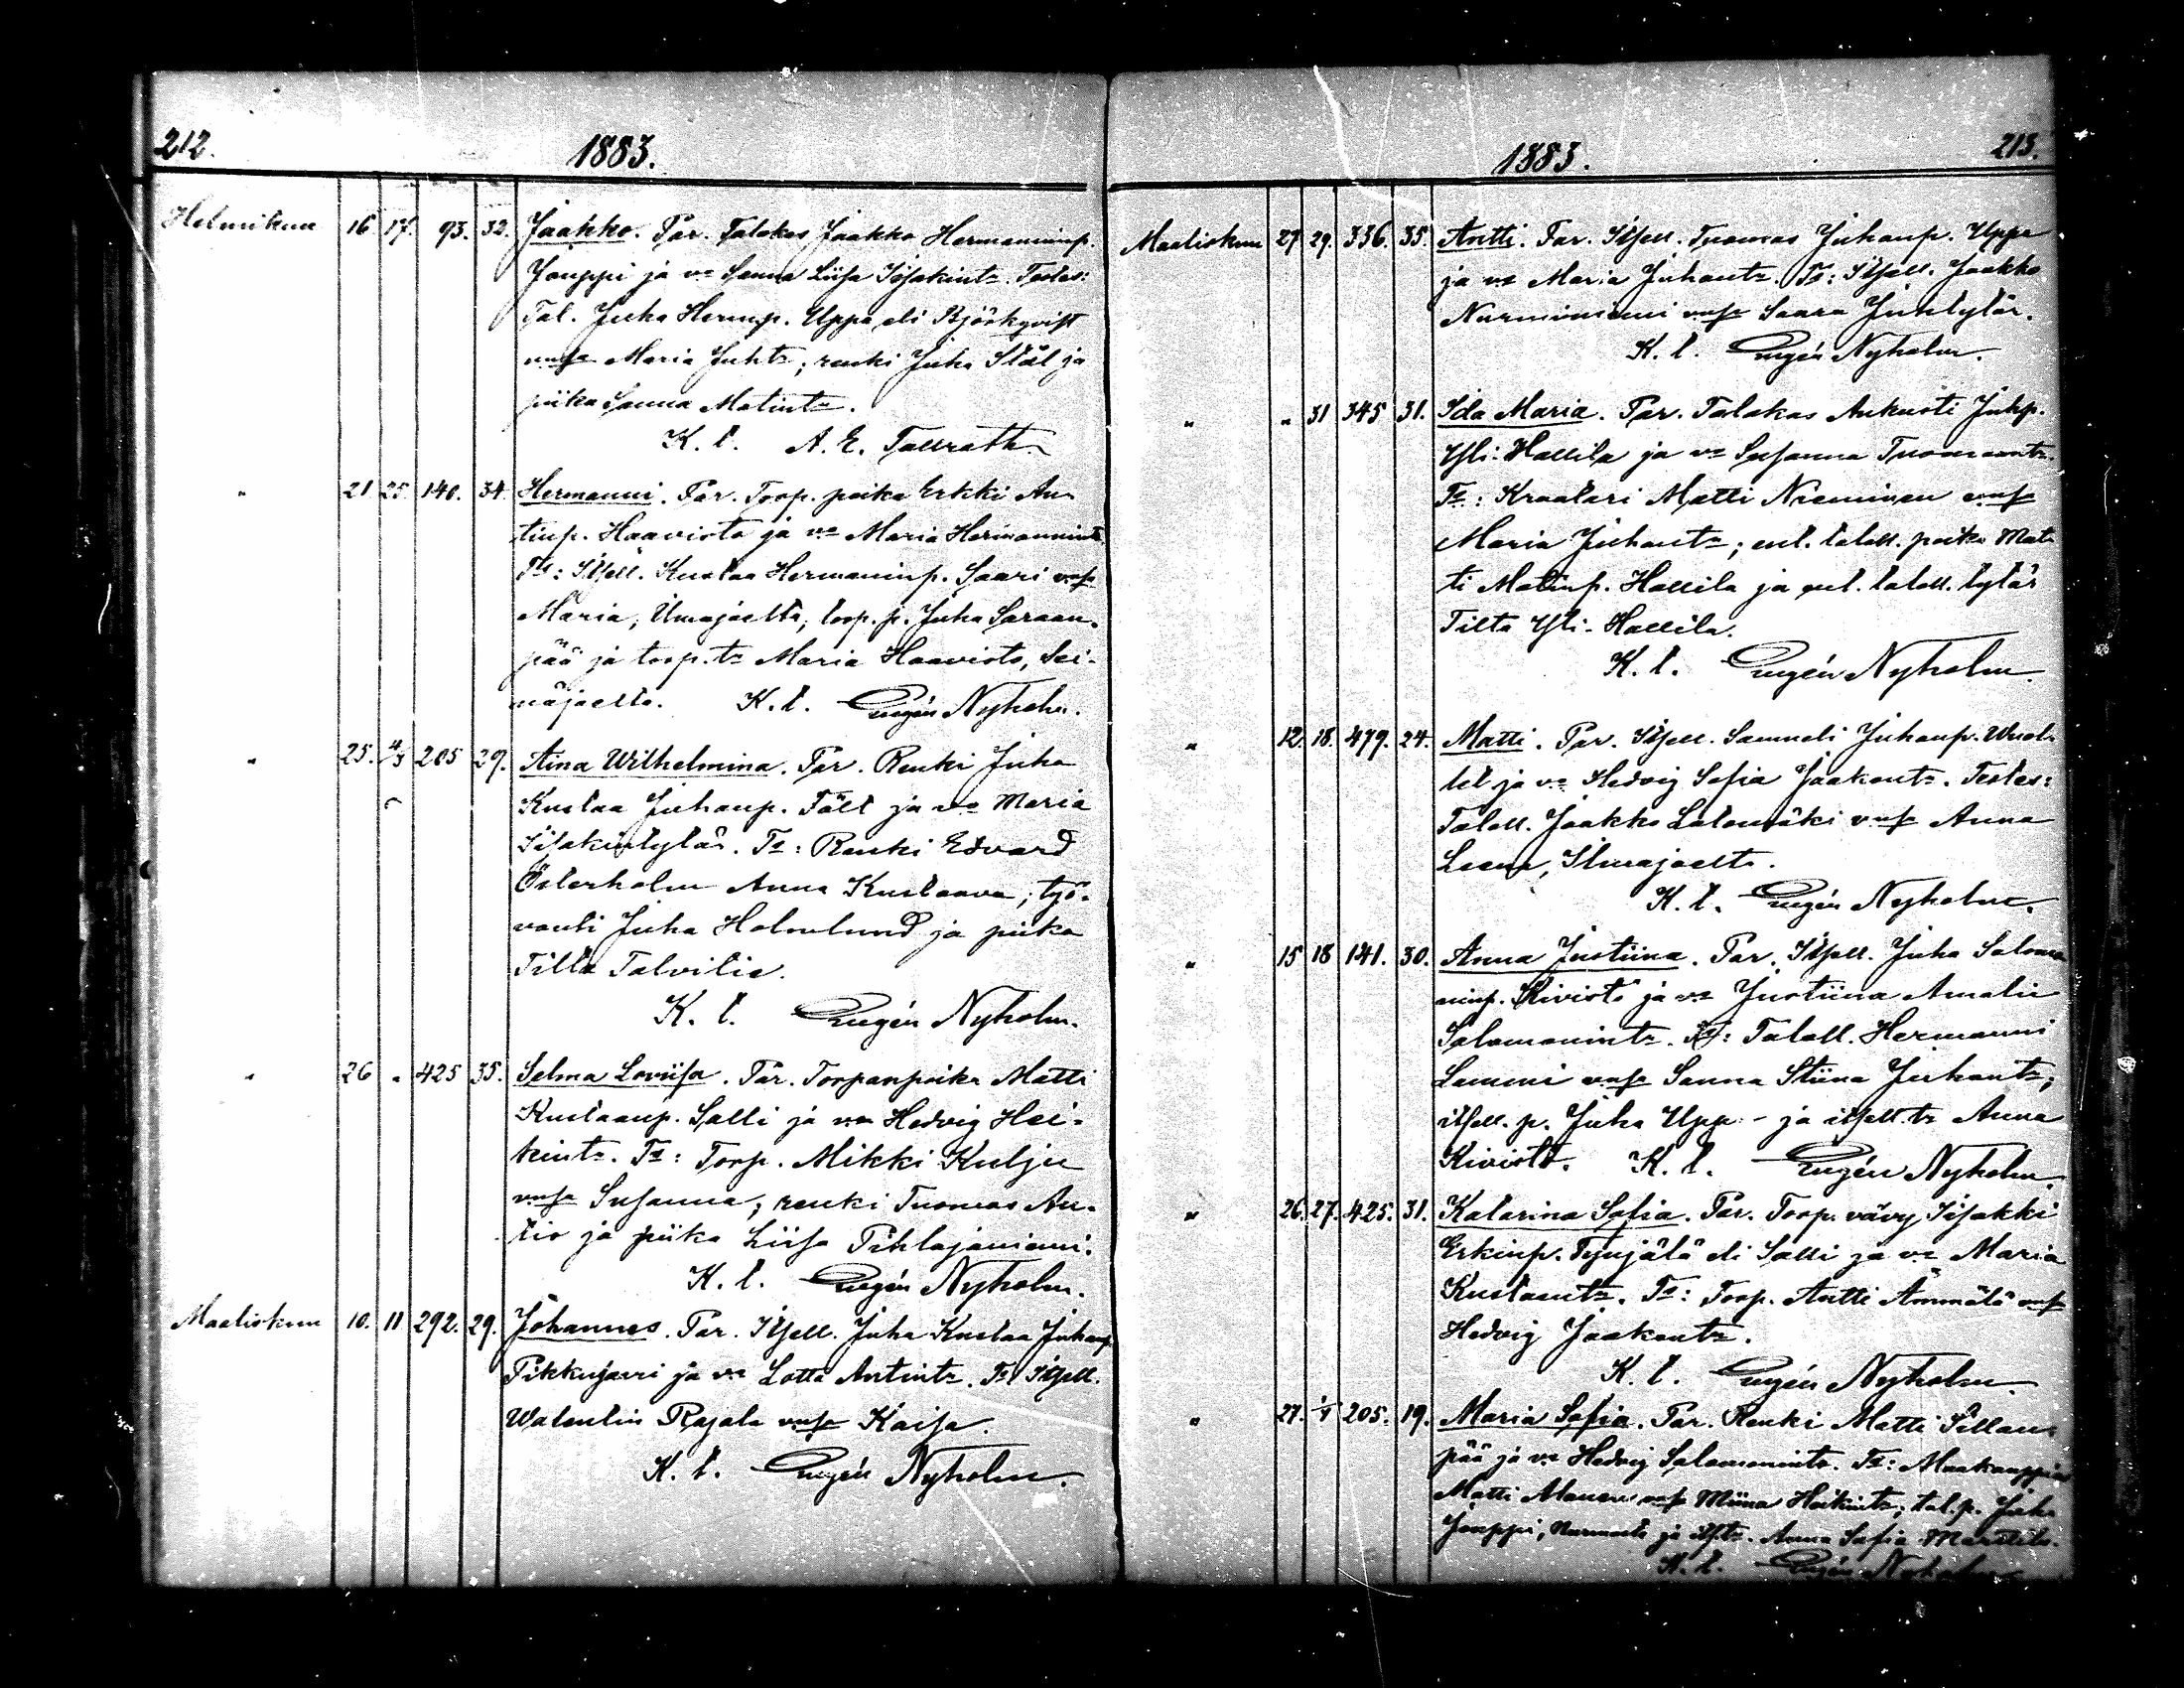 212.
1883.
Helmikuu 16. 17. 93. 32. Jaakko. Par. Talokas Jaakko Hermanninp.
Jouppi ja v:o Sanna Liisa Iisakint:r. Testes:
Tal. Juha Hermp. Uppa eli Björkqvist
vmsa Maria Juht:r; renki Juha Stål ja
piika Sanna Matint:r.
K. t. A. E. Tallroth
" 21 25. 140. 34. Hermanni. Par. Torp. poika Erkki An-
tinp. Haavisto ja v:o Maria Hermannint.
T:s: Itsell. Kustaa Hermaninp. Saari vmsa
Maria, Ilmajoelta, torp. p. Juha Saraan-
pää ja torp. t:r Maria Haavisto, Sei-
näjoelta. K. t. Eugén Nyholm.
" 25. 4/3 205 29. Aina Wilhelmina. Par. Renki Juha
Kustaa Juhanp. Fält ja v:o Maria
Iisakintytär. T:s: Renki Edvard
Österholm Anna Kustaava; työ-
vouti Juha Holmlund ja piika
Tilta Talvitie.
K. t. Eugén Nyholm.
" 26 " 425 35. Selma Loviisa. Par. Torpanpoika Matti
Kustaanp. Salli ja v:o Hedvig Hei-
kint:r. T:s: Torp. Mikki Kulju
vmsa Susanna; renki Tuomas An-
tio ja piika Liisa Pihlajaniemi.
K. t. Eugén Nyholm.
Maaliskuu 10. 11 292. 29. Johannes. Par. Itsell. Juha Kustaa Juhanp.
Pikkujouri ja v:o Lotta Antint:r. T:s Itsell.
Walentin Rajala vmsa Kaisa.
K. t. Eugén Nyholm.
1883. 213.
Maaliskuu 27 29. 336. 35. Antti. Par. Itsell. Tuomas Juhanp. Uppa
ja v:o Maria Juhant:r. T:s: Itsell. Jaakko
Nurminiemi vmsa Saara Juhtytär.
K. t. Eugén Nyholm.
" " 31 345 31. Ida Maria. Par. Talokas Aukusti Juhp.
Yli-Hallila ja v:o Susanna Tuomaant:r.
T:s: Kraatari Matti Nieminen vmsa
Maria Juhant:r; ent. taloll. poika Mat-
ti Matinp. Hallila ja ent. taloll. tytär
Tilta Yli-Hallila.
K. t. Eugén Nyholm.
" 12. 18. 479. 24. Matti. Par. Itsell. Samueli Juhanp. Wuol-
tel ja v:o Hedvig Sofia Jaakont:r. Testes:
Taloll. Jaakko Latomäki vmsa Anna
Leena, Ilmajoelta.
K. t. Eugén Nyholm.
" 15 18 141. 30. Anna Justiina. Par. Itsell. Juha Salomo-
ninp. Kivistö ja v:o Justiina Amalia
Salomonint:r. T:s: Taloll. Hermanni
Lammi vmsa Sanna Stiina Juhant:r;
itsell. p. Juha Uppa ja itsell. t:r Anna
Kivistö. K. t. Eugén Nyholm.
" 26. 27. 425. 31. Katarina Sofia. Par. Torp. vävy Iisakki
Erkinp. Tynjälä eli Salli ja v:o Maria
Kustaant:r. T:s: Torp. Antti Ämmälä vmsa
Hedvig Jaakont:r.
K. t. Eugén Nyholm.
" 27. 1/4 205. 19. Maria Sofia. Par. Renki Matti Sillan-
pää ja v:o Hedvig Salomonint:r. T:s: Maakauppias
Matti Alanen vmsa Miina Heikint:r; tal. p. Juha
Jouppi, Nurmosta ja its. t:r. Anna Sofia Marttila.
K. t. Eugén Nyholm